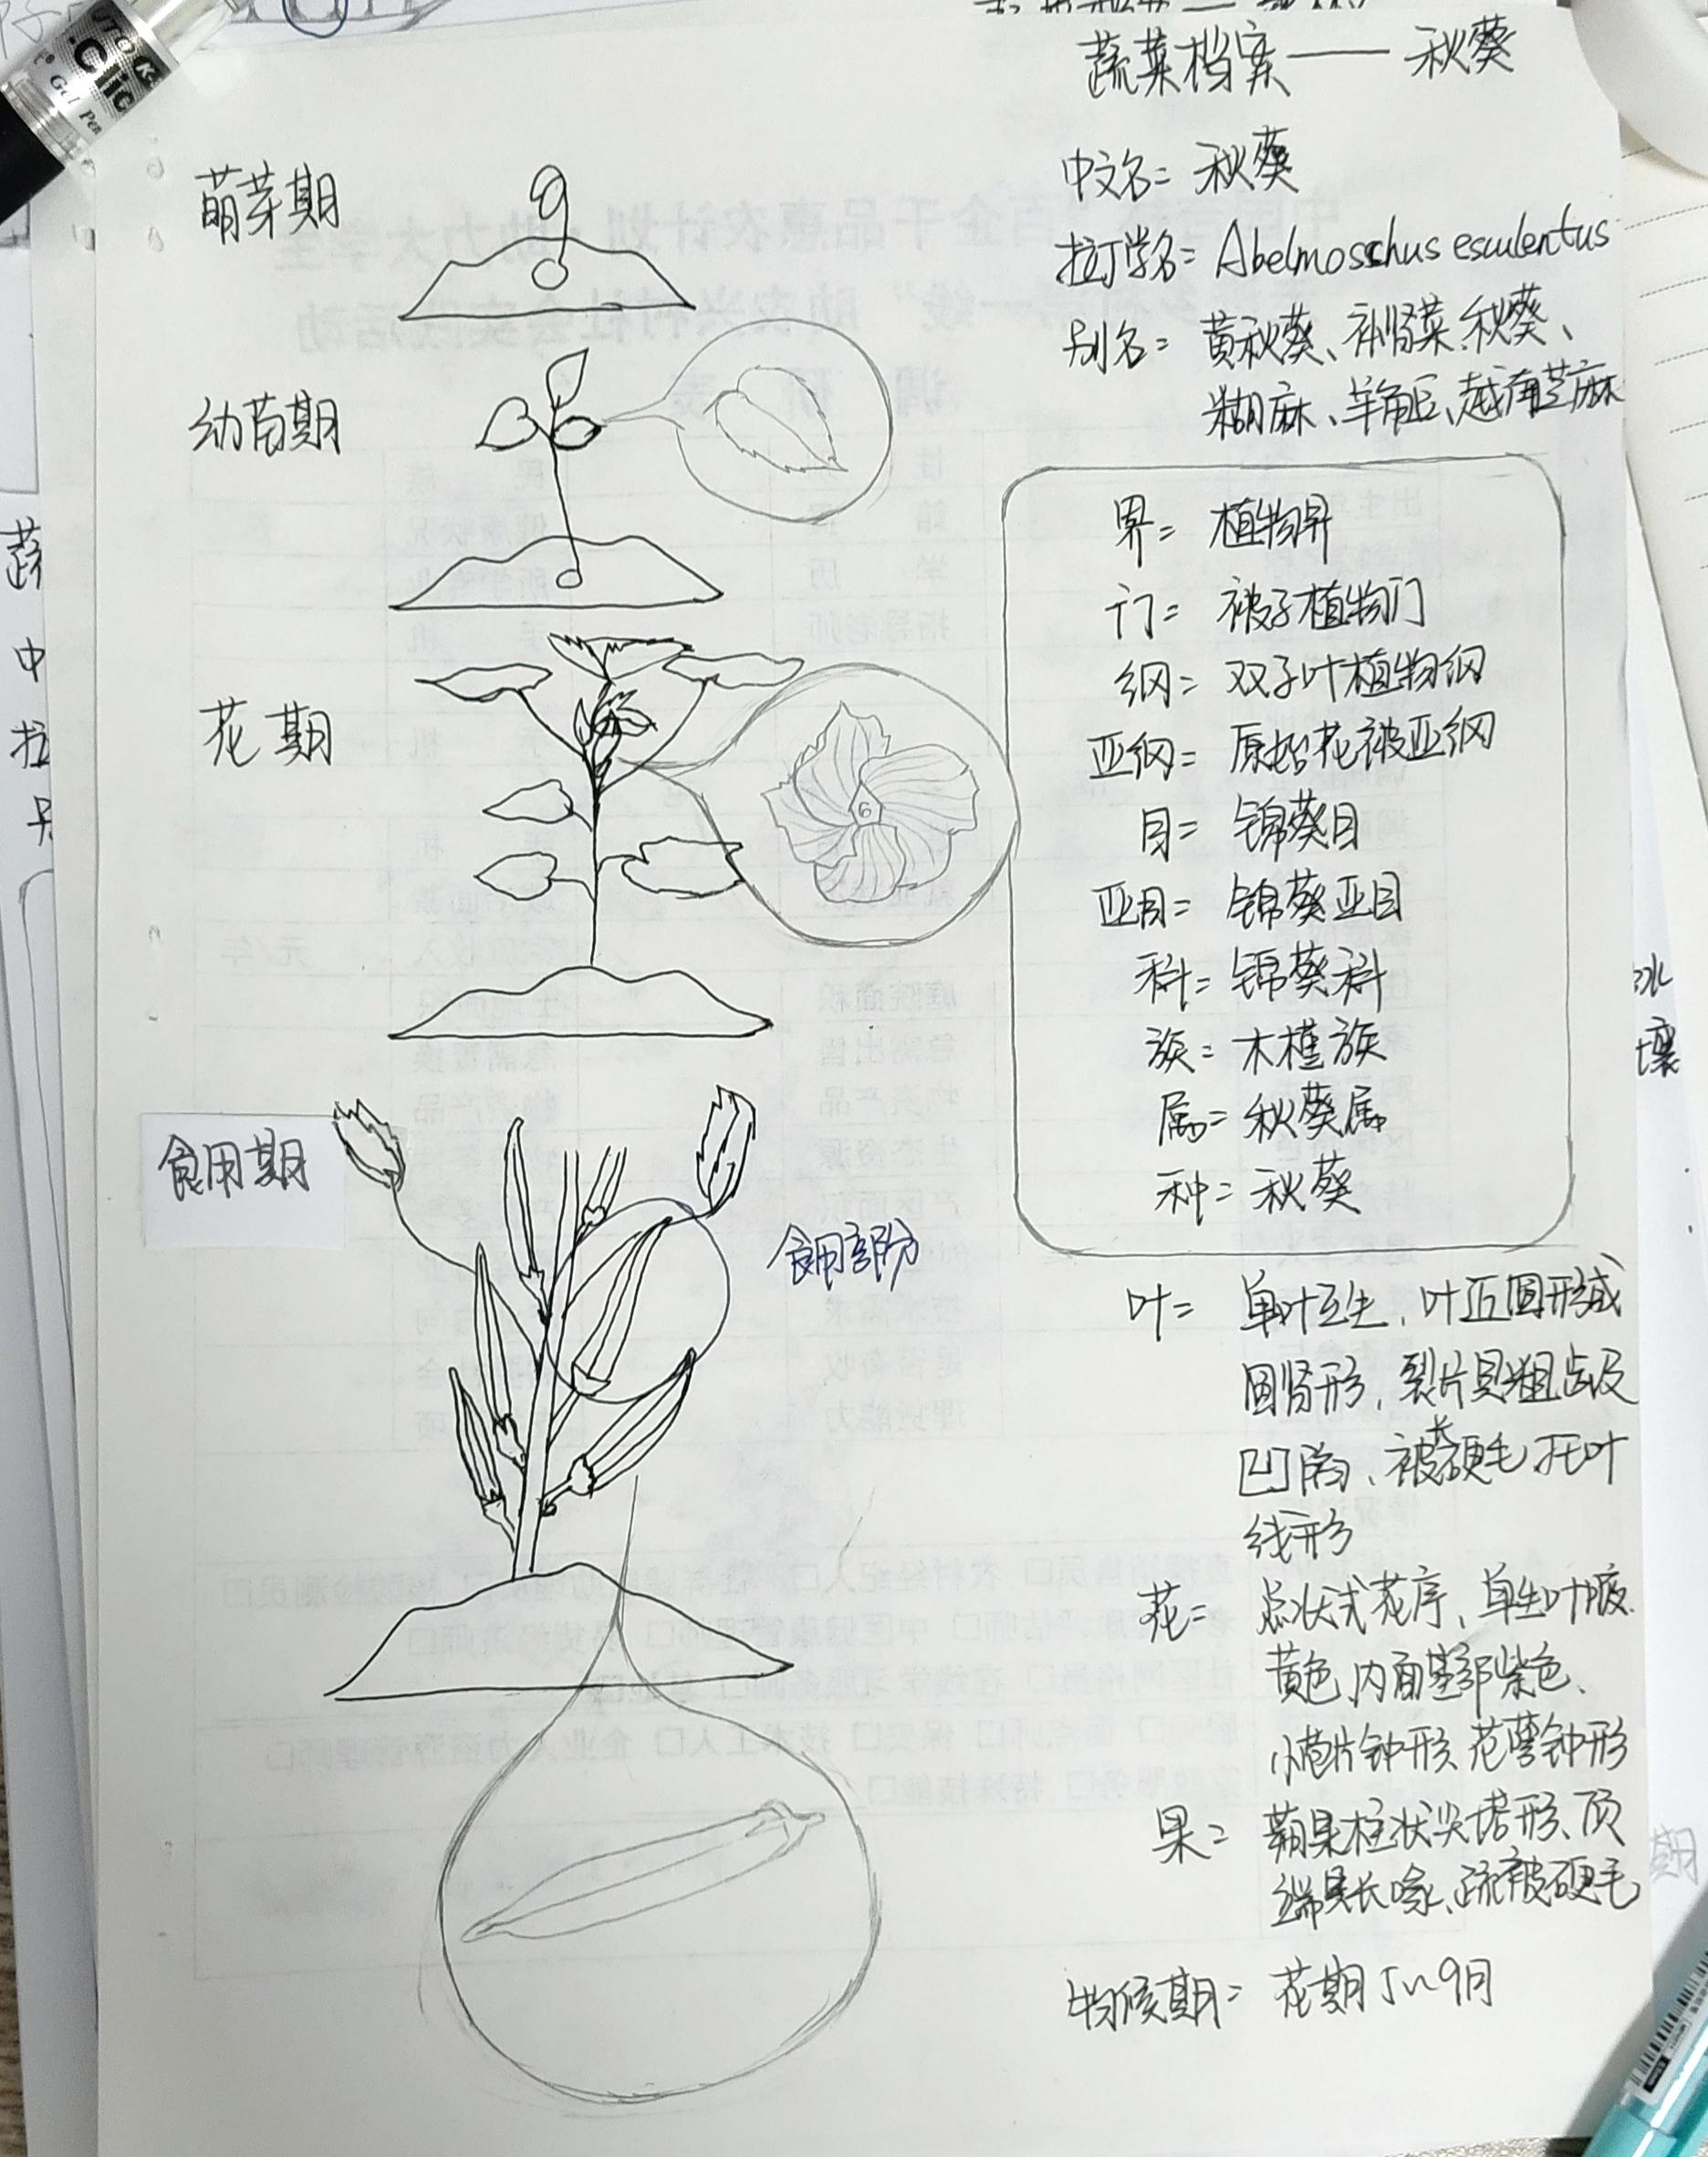 蔬菜档案——秋葵
中文名：秋葵
拉丁学名：Abelmosschus esculentus
别名：黄秋葵、补肾菜、秋葵、
糊麻、羊角豆、越南芝麻
萌芽期
幼苗期
花期
食用期
食用部分
界：植物界
门：被子植物门
纲：双子叶植物纲
亚纲：原始花被亚纲
目：锦葵目
亚目：锦葵亚目
科：锦葵科
族：木槿族
属：秋葵属
种：秋葵
叶：单叶互生，叶近圆形或
圆肾形，裂片具粗齿及
凹陷、被长硬毛，托叶
线形
花：总状式花序、单生叶腋
黄色、内面基部紫色、
小苞片钟形、花萼钟形
果：蒴果柱状尖塔形、顶
端具长喙、疏被硬毛
物候期：花期5~9月
蔬
中
拉
水
壤
期
Clic
Gel Pen